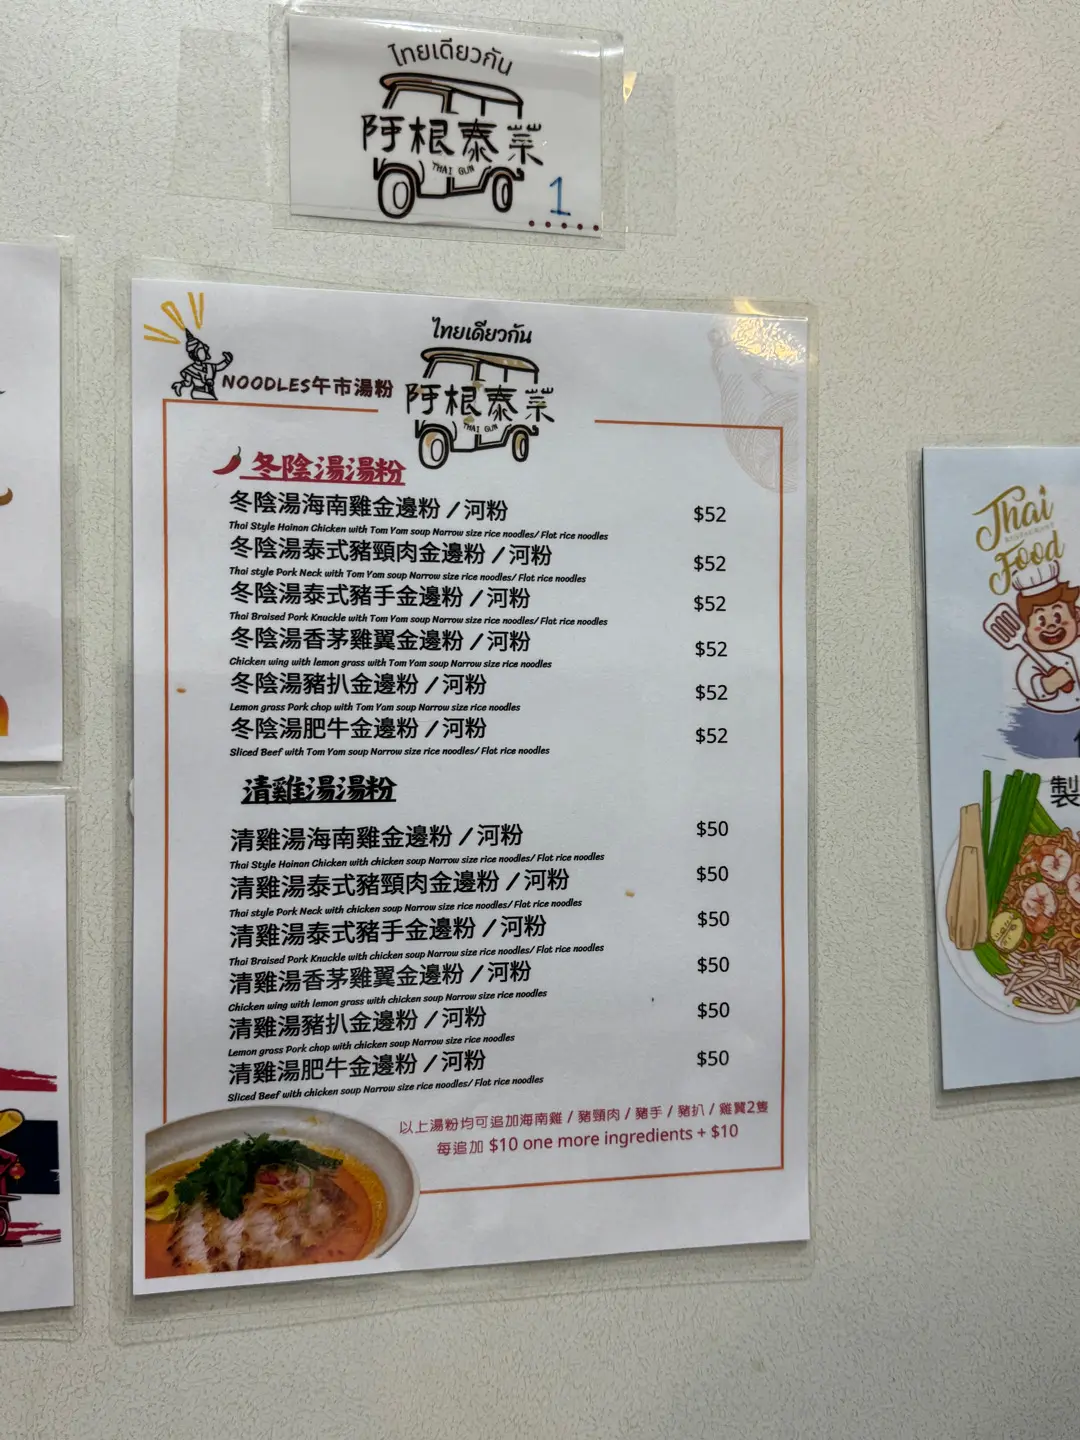 ไทยเดียวกัน
阿根泰菜
THAI GUN
1
ไทยเดียวกัน
NOODLES午市湯粉
阿根泰菜
THAI GUN
冬陰湯湯粉
冬陰湯海南雞金邊粉 / 河粉 $52
Thai Style Hainan Chicken with Tom Yam soup Narrow size rice noodles/ Flat rice noodles
冬陰湯泰式豬頸肉金邊粉 / 河粉 $52
Thai style Pork Neck with Tom Yam soup Narrow size rice noodles/ Flat rice noodles
冬陰湯泰式豬手金邊粉 / 河粉 $52
Thai Braised Pork Knuckle with Tom Yam soup Narrow size rice noodles/ Flat rice noodles
冬陰湯香茅雞翼金邊粉 / 河粉 $52
Chicken wing with lemon grass with Tom Yam soup Narrow size rice noodles
冬陰湯豬扒金邊粉 / 河粉 $52
Lemon grass Pork chop with Tom Yam soup Narrow size rice noodles
冬陰湯肥牛金邊粉 / 河粉 $52
Sliced Beef with Tom Yam soup Narrow size rice noodles/ Flat rice noodles
清雞湯湯粉
清雞湯海南雞金邊粉 / 河粉 $50
Thai Style Hainan Chicken with chicken soup Narrow size rice noodles/ Flat rice noodles
清雞湯泰式豬頸肉金邊粉 / 河粉 $50
Thai style Pork Neck with chicken soup Narrow size rice noodles/ Flat rice noodles
清雞湯泰式豬手金邊粉 / 河粉 $50
Thai Braised Pork Knuckle with chicken soup Narrow size rice noodles/ Flat rice noodles
清雞湯香茅雞翼金邊粉 / 河粉 $50
Chicken wing with lemon grass with chicken soup Narrow size rice noodles
清雞湯豬扒金邊粉 / 河粉 $50
Lemon grass Pork chop with chicken soup Narrow size rice noodles
清雞湯肥牛金邊粉 / 河粉 $50
Sliced Beef with chicken soup Narrow size rice noodles/ Flat rice noodles
以上湯粉均可追加海南雞 / 豬頸肉 / 豬手 / 豬扒 / 雞翼2隻
每追加 $10 one more ingredients + $10
Thai
RESTAURANT
Food
製